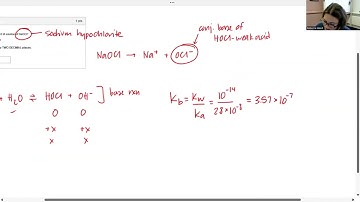 sodium hypochlorite
conj. base of
HOCl - weak acid
NaOCl → Na⁺ + OCl⁻
by TWO DECIMAL places.
+ H₂O ⇌ HOCl + OH⁻ ] base rxn
0 0
+x +x
x x
K_b = K_w/K_a = 10⁻¹⁴/2.8×10⁻⁸ = 3.57×10⁻⁷